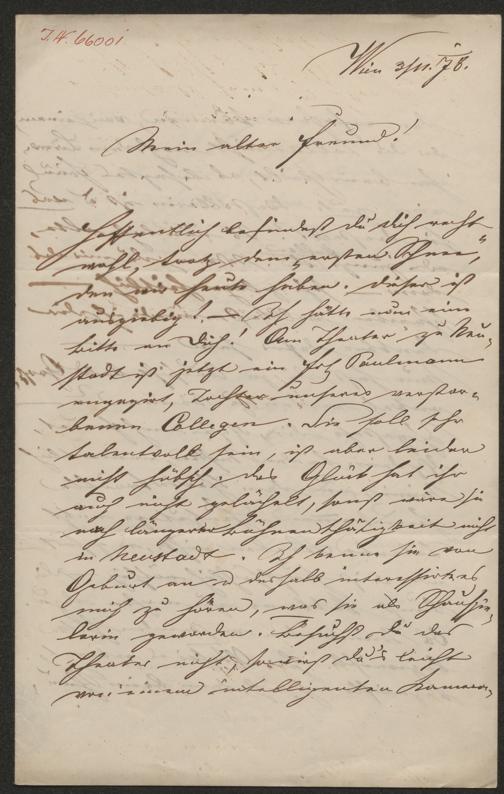 I.N. 66001
Wien 3/11. 78.
Mein alter Freund!
Hoffentlich befindest du dich recht
wohl, trotz dem "ersten Schnee",
den wir heute haben. Dieser ist
ausgiebig! — Ich hätte nun eine
Bitte an Dich! Am Theater zu Neu-
stadt ist jetzt ein Frl Paulmann
engagirt, Tochter unseres verstor-
benen Collegen. Sie soll sehr
talentvoll sein, ist aber leider
nicht hübsch. Das Glück hat ihr
auch nicht gelächelt, sonst wäre sie
nach längerer Bühnenthätigkeit nicht
in Neustadt. Ich kenne sie von
Geburt an u deshalb interessirt es
mich zu hören, was sie als Schauspie-
lerin geworden. Besuchst du das
Theater nicht, so wirst du's leicht
von einem intelligenten Kamera-